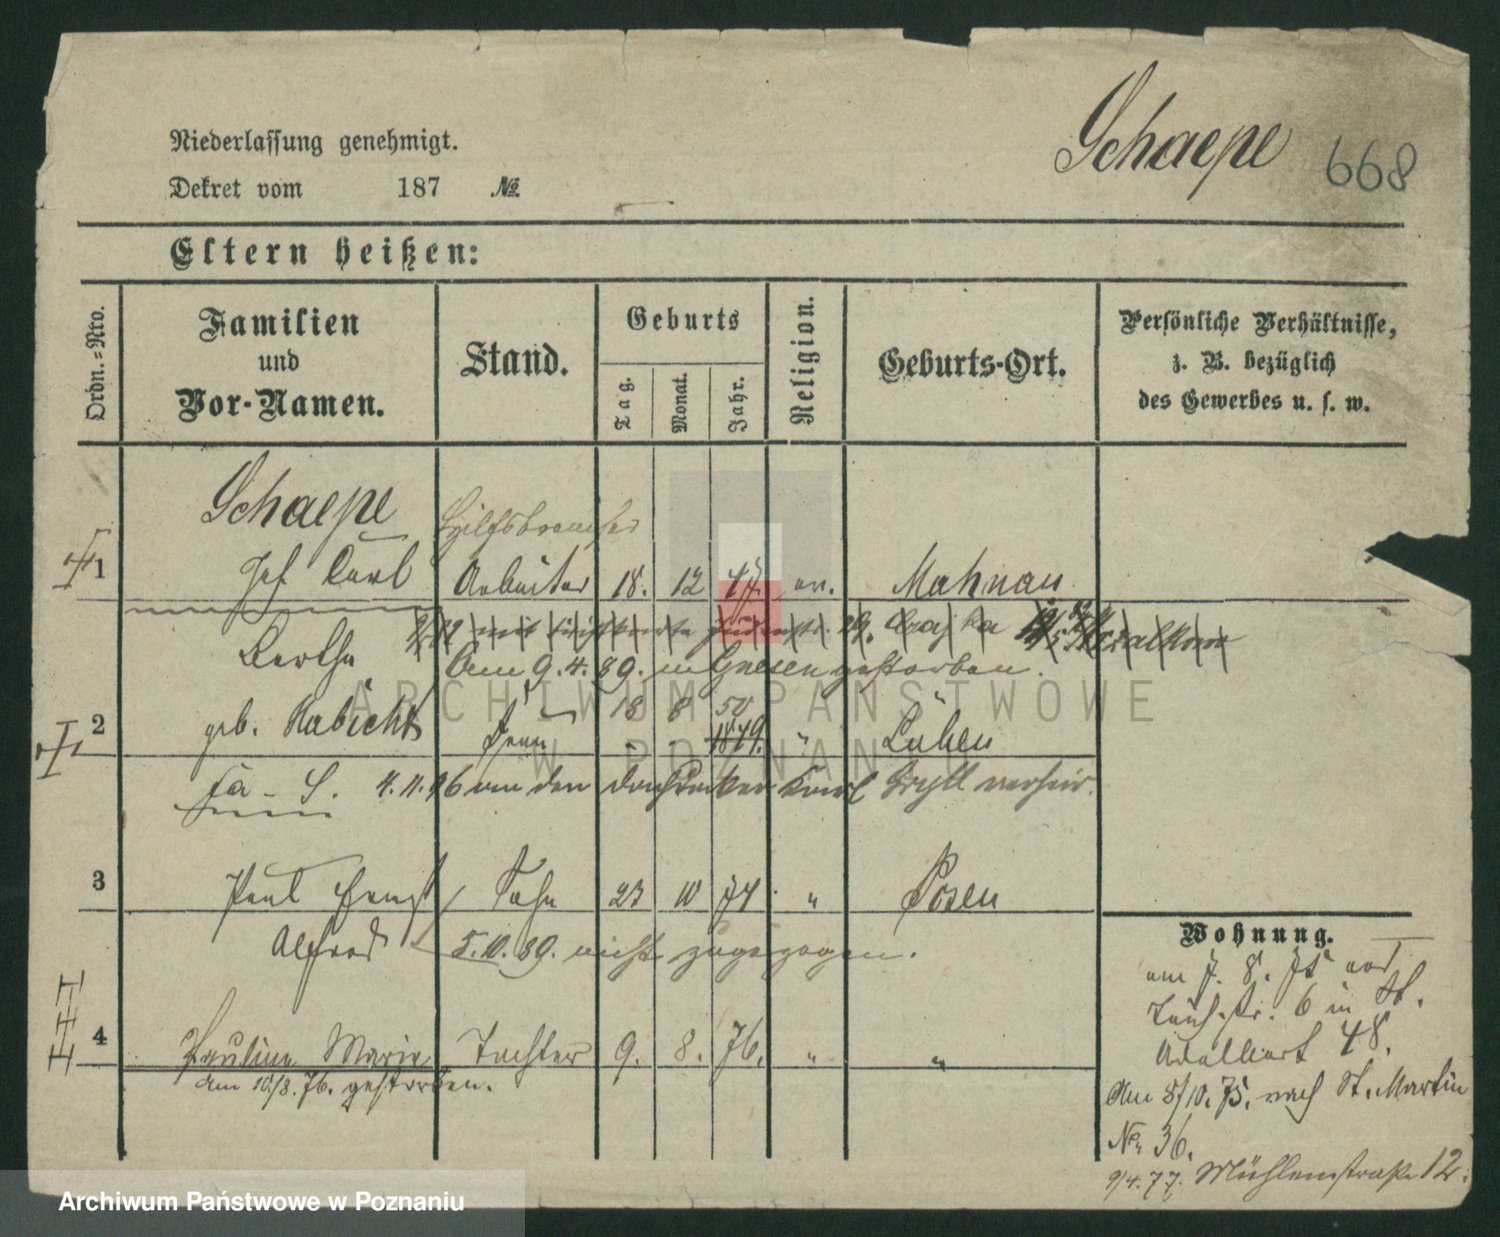 Schaepe 668
Niederlassung genehmigt.
Dekret vom 187 №
Eltern heißen:
Ordn.=Nro.
Familien
und
Vor-Namen.
Stand.
Geburts
Tag.
Monat.
Jahr.
Religion.
Geburts-Ort.
Persönliche Verhältnisse,
z. B. bezüglich
des Gewerbes u. s. w.
Schaepe Hilfsbremser
1 Joh Carl Arbeiter 18. 12 47. ev. Mahnau
Bertha
Am 9. 4. 89. in Gnesen gestorben.
18 8 50
2 geb. Habicht Frau 1849. " Lüben
4. 11. 96 an den Karl
3 Paul Ernst Sohn 23 10 74 " Posen
Alfred 5. 10. 89. nicht zugezogen.
4 Pauline Marie Tochter 9. 8. 76. " "
am 10./8. 76. gestorben.
Wohnung.
am 7. 8. 75
6 in St.
Adalbert 48.
Am 8/10. 75. nach St. Martin
No 36.
9/4. 77. Mühlenstraße 12.
ARCHIWUM PAŃSTWOWE
W POZNANIU
Archiwum Państwowe w Poznaniu